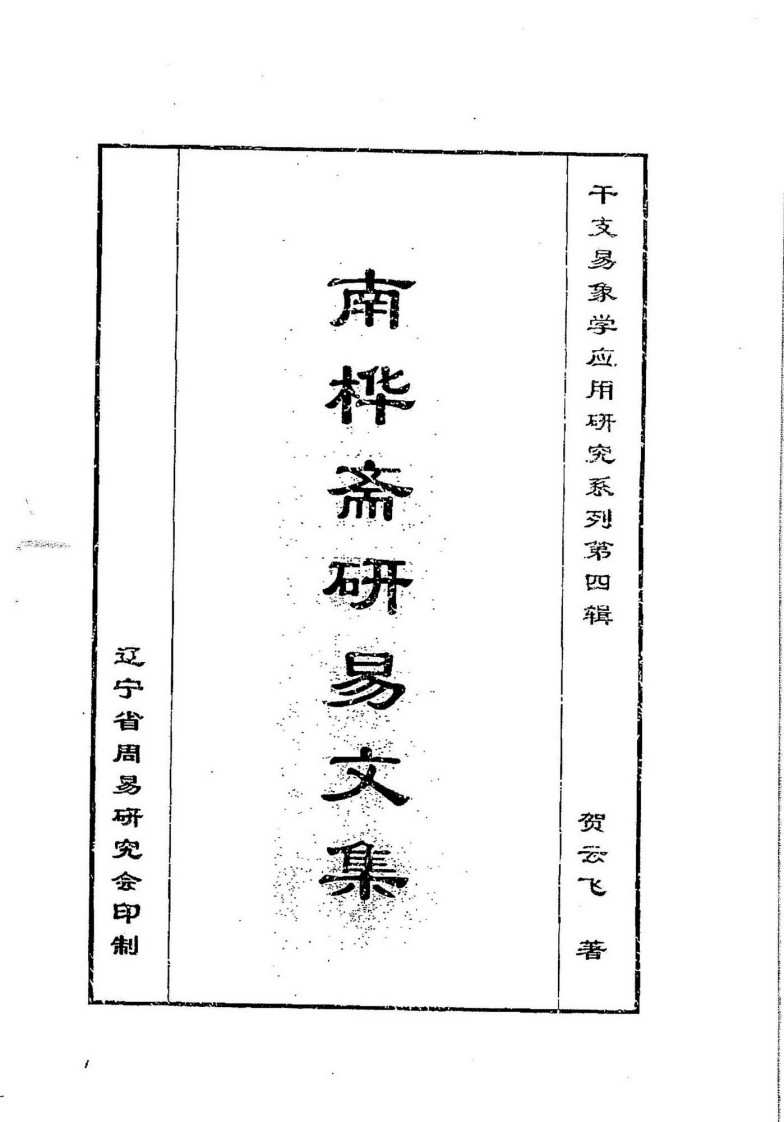 干支易象学应用研究系列第四辑
贺云飞 著
南桦斋研易文集
辽宁省周易研究会印制